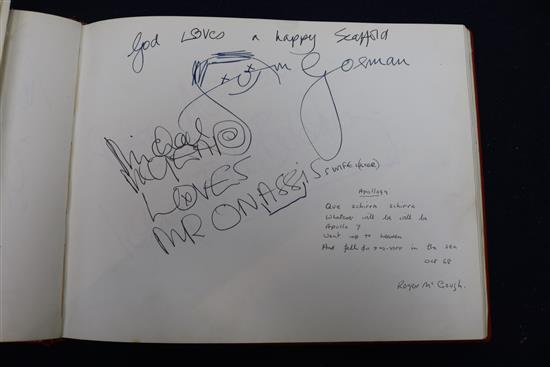 God Loves a happy Scaffold
John Gorman
Michael
LOVES
MR ONASSiS'S WIFE (KER)
Apollo 7
Que schirra schirra
Whatever will be will be
Apollo 7
Went up to heaven
And fell in the sea
Oct 68
Roger McGough.